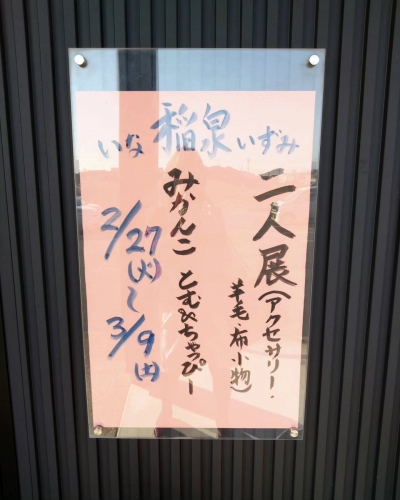 いな 稲泉 いずみ
二人展(アクセサリー・
羊毛・布小物)
みかんこ
2/27(火)〜
3/9(土)